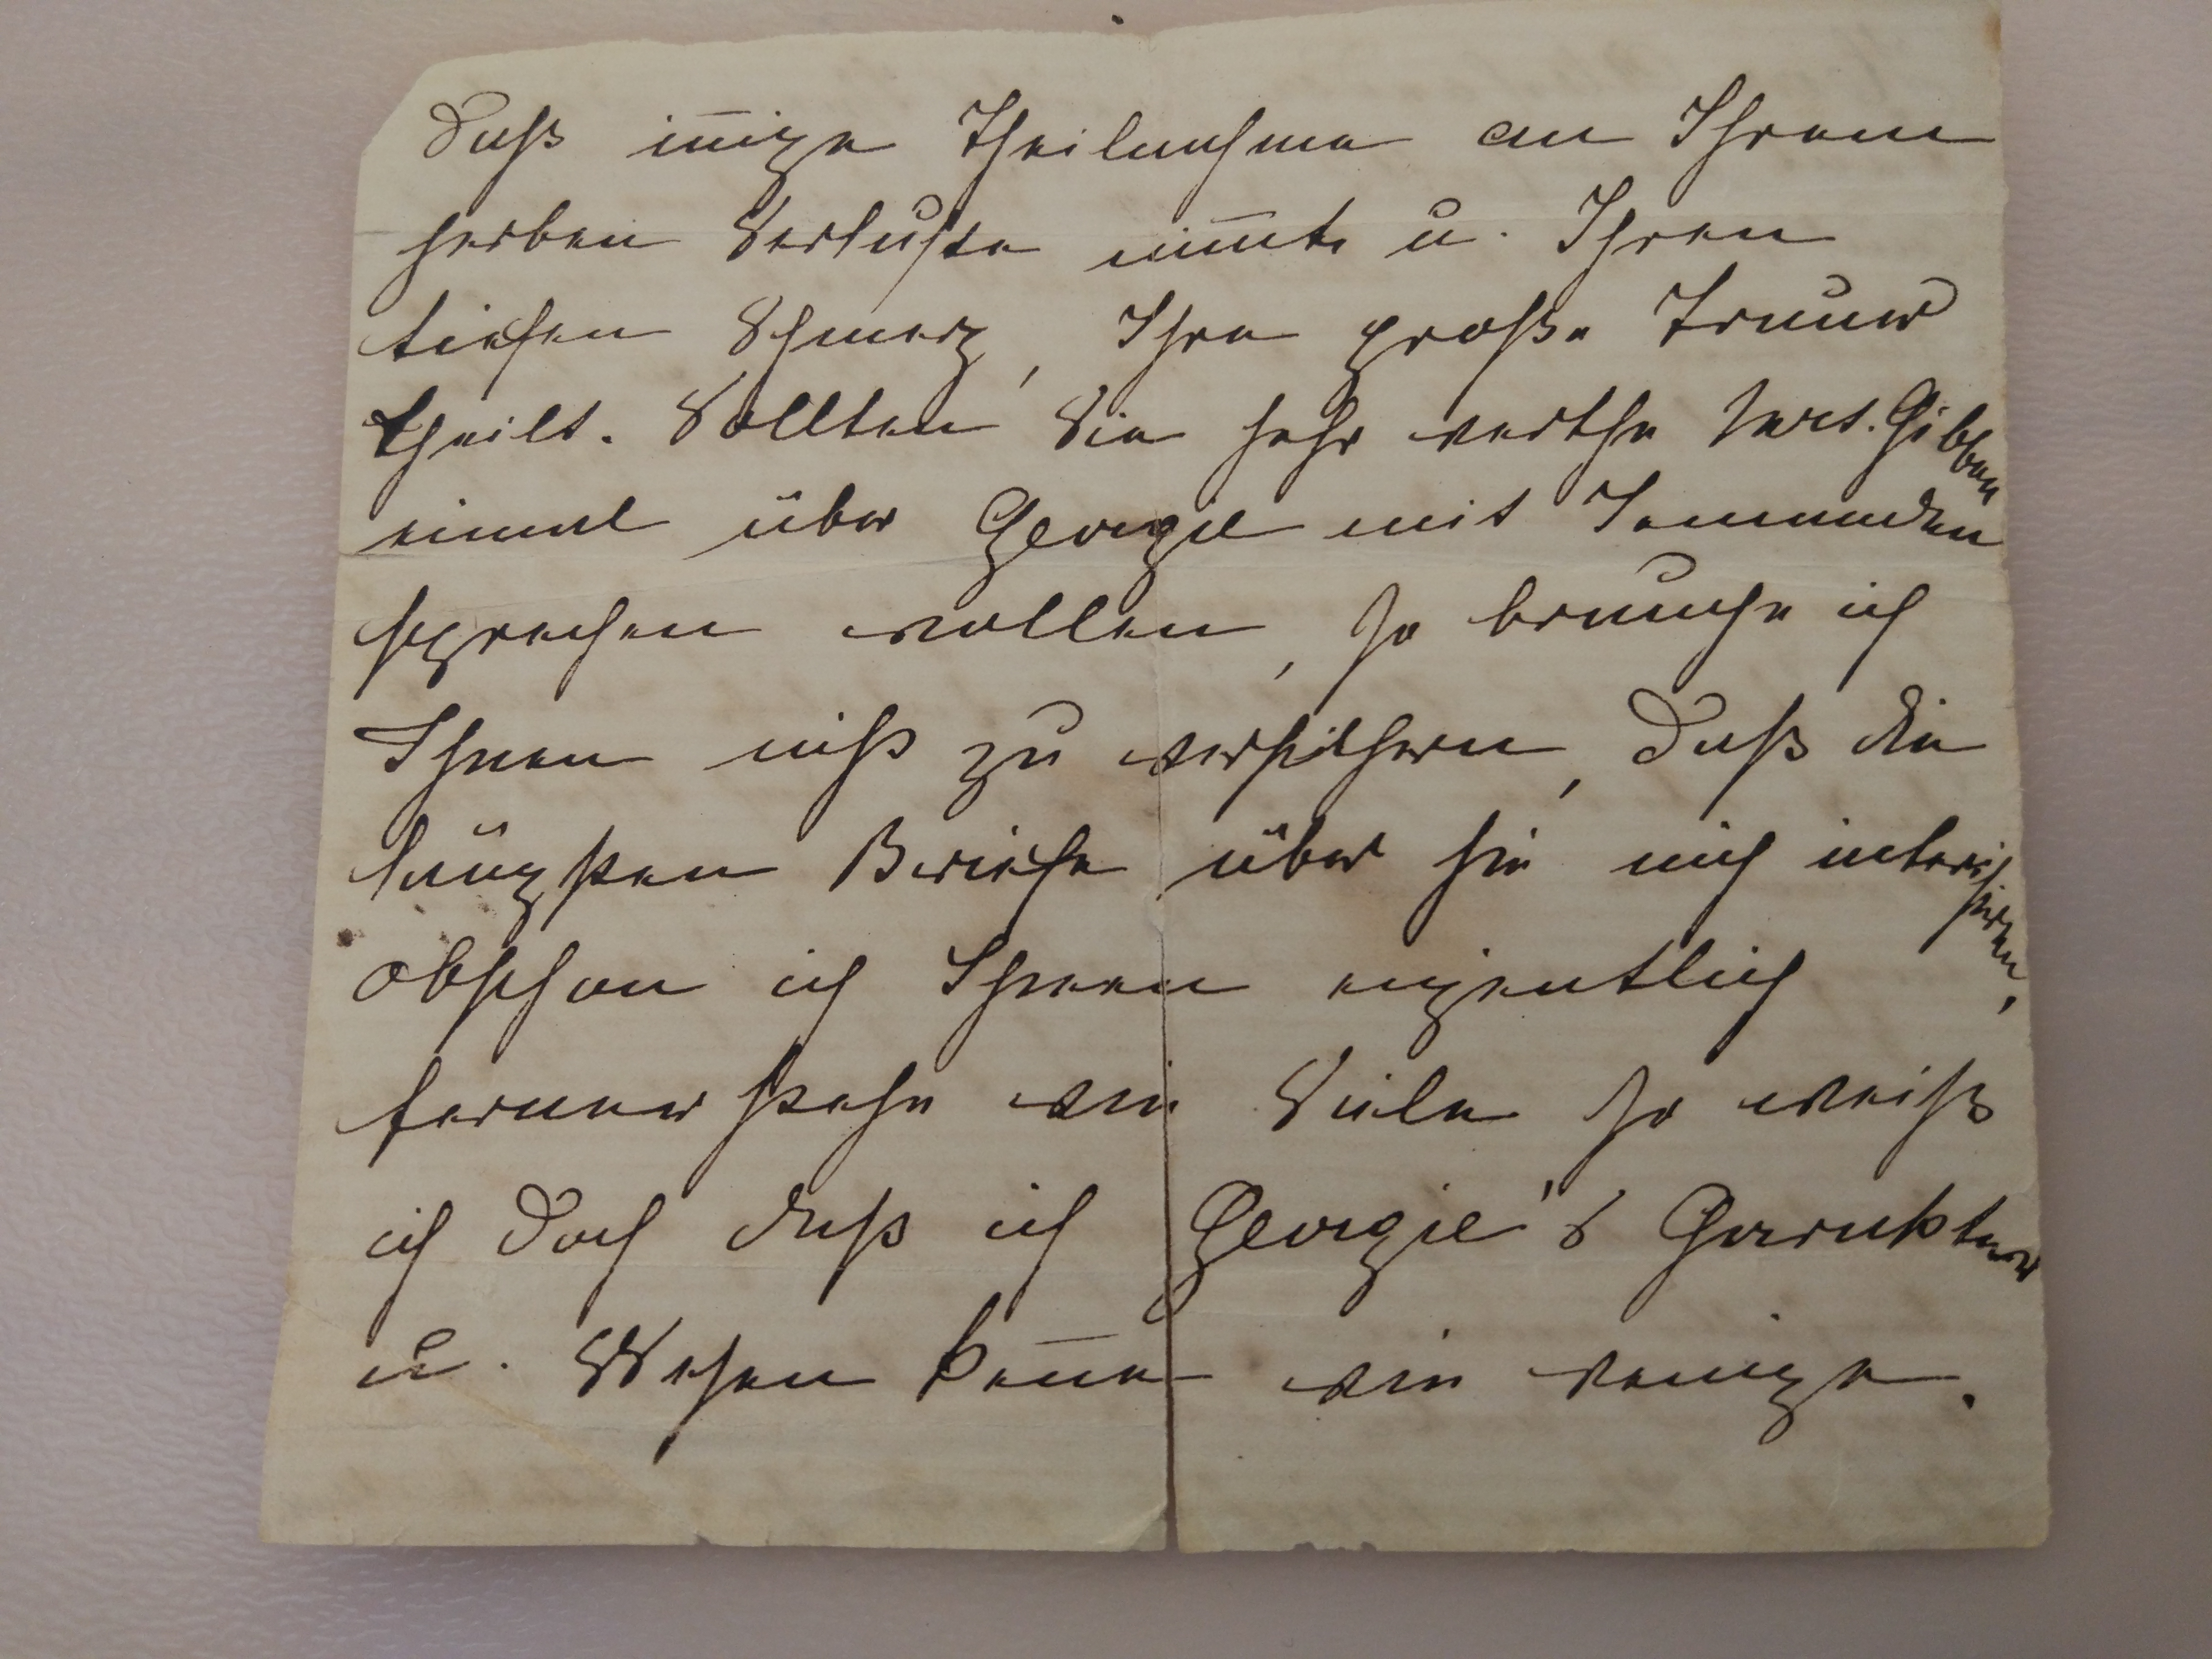 daß iñige Theilnahme an Ihrem
herben Verluste nim̃t u. Ihren
tiefen Schmerz, Ihre große Trauer
theilt. Sollten Sie sehr werthe Mrs. Gibben
einmal über Georgie mit Jemanden
sprechen wollen, so brauche ich
Ihnen nicht zu versichern, daß die
längsten Briefe über sie mich interessiren,
obschon ich Ihnen eigentlich
ferner stehe wie Viele so weiß
ich doch daß ich Georgie's Charakter
u. Wesen keñe wie wenige.